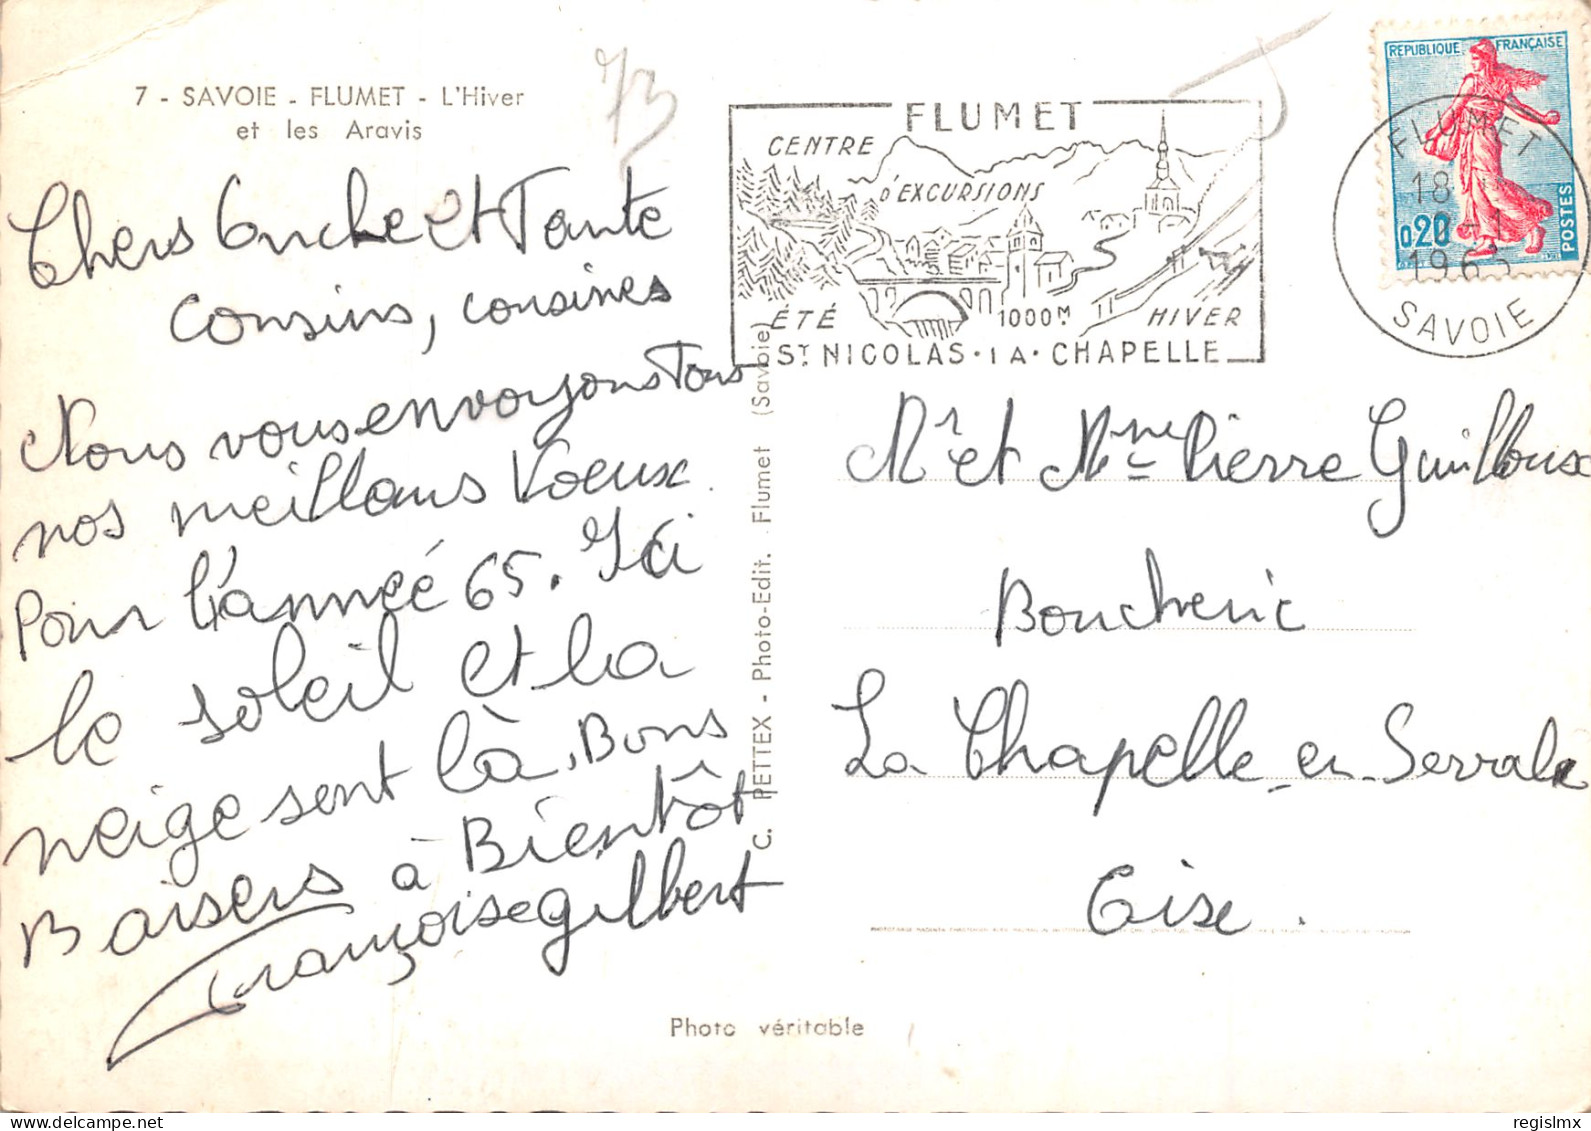 7 - SAVOIE - FLUMET - L'Hiver
et les Aravis
73
Chers Oncle et Tante
cousins, cousines
Nous vous envoyons Tous
nos meilleurs Voeux
Pour l'année 65. Ici
le soleil et la
neige sont là. Bons
Baisers à Bientôt
Françoise gilbert
C. PETTEX - Photo-Edit. Flumet (Savoie)
FLUMET
CENTRE
D'EXCURSIONS
ÉTÉ 1000M HIVER
ST NICOLAS·LA·CHAPELLE
REPUBLIQUE FRANÇAISE
0,20
POSTES
FLUMET
18
-1
1965
SAVOIE
Mr et Mme Pierre Guilloux
Boucherie
La Chapelle en Serval
Oise.
Photo véritable
regislmx